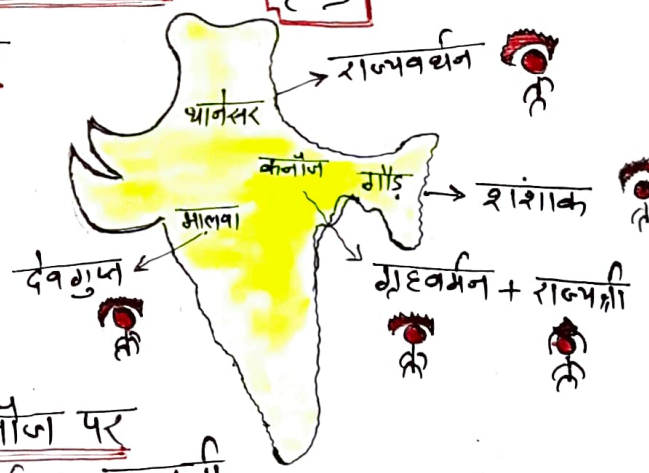 राज्यवर्धन
थानेसर
कनौज
गौड़
शंशाक
मालवा
देवगुप्त
ग्रहवर्मन + राज्यश्री
पर